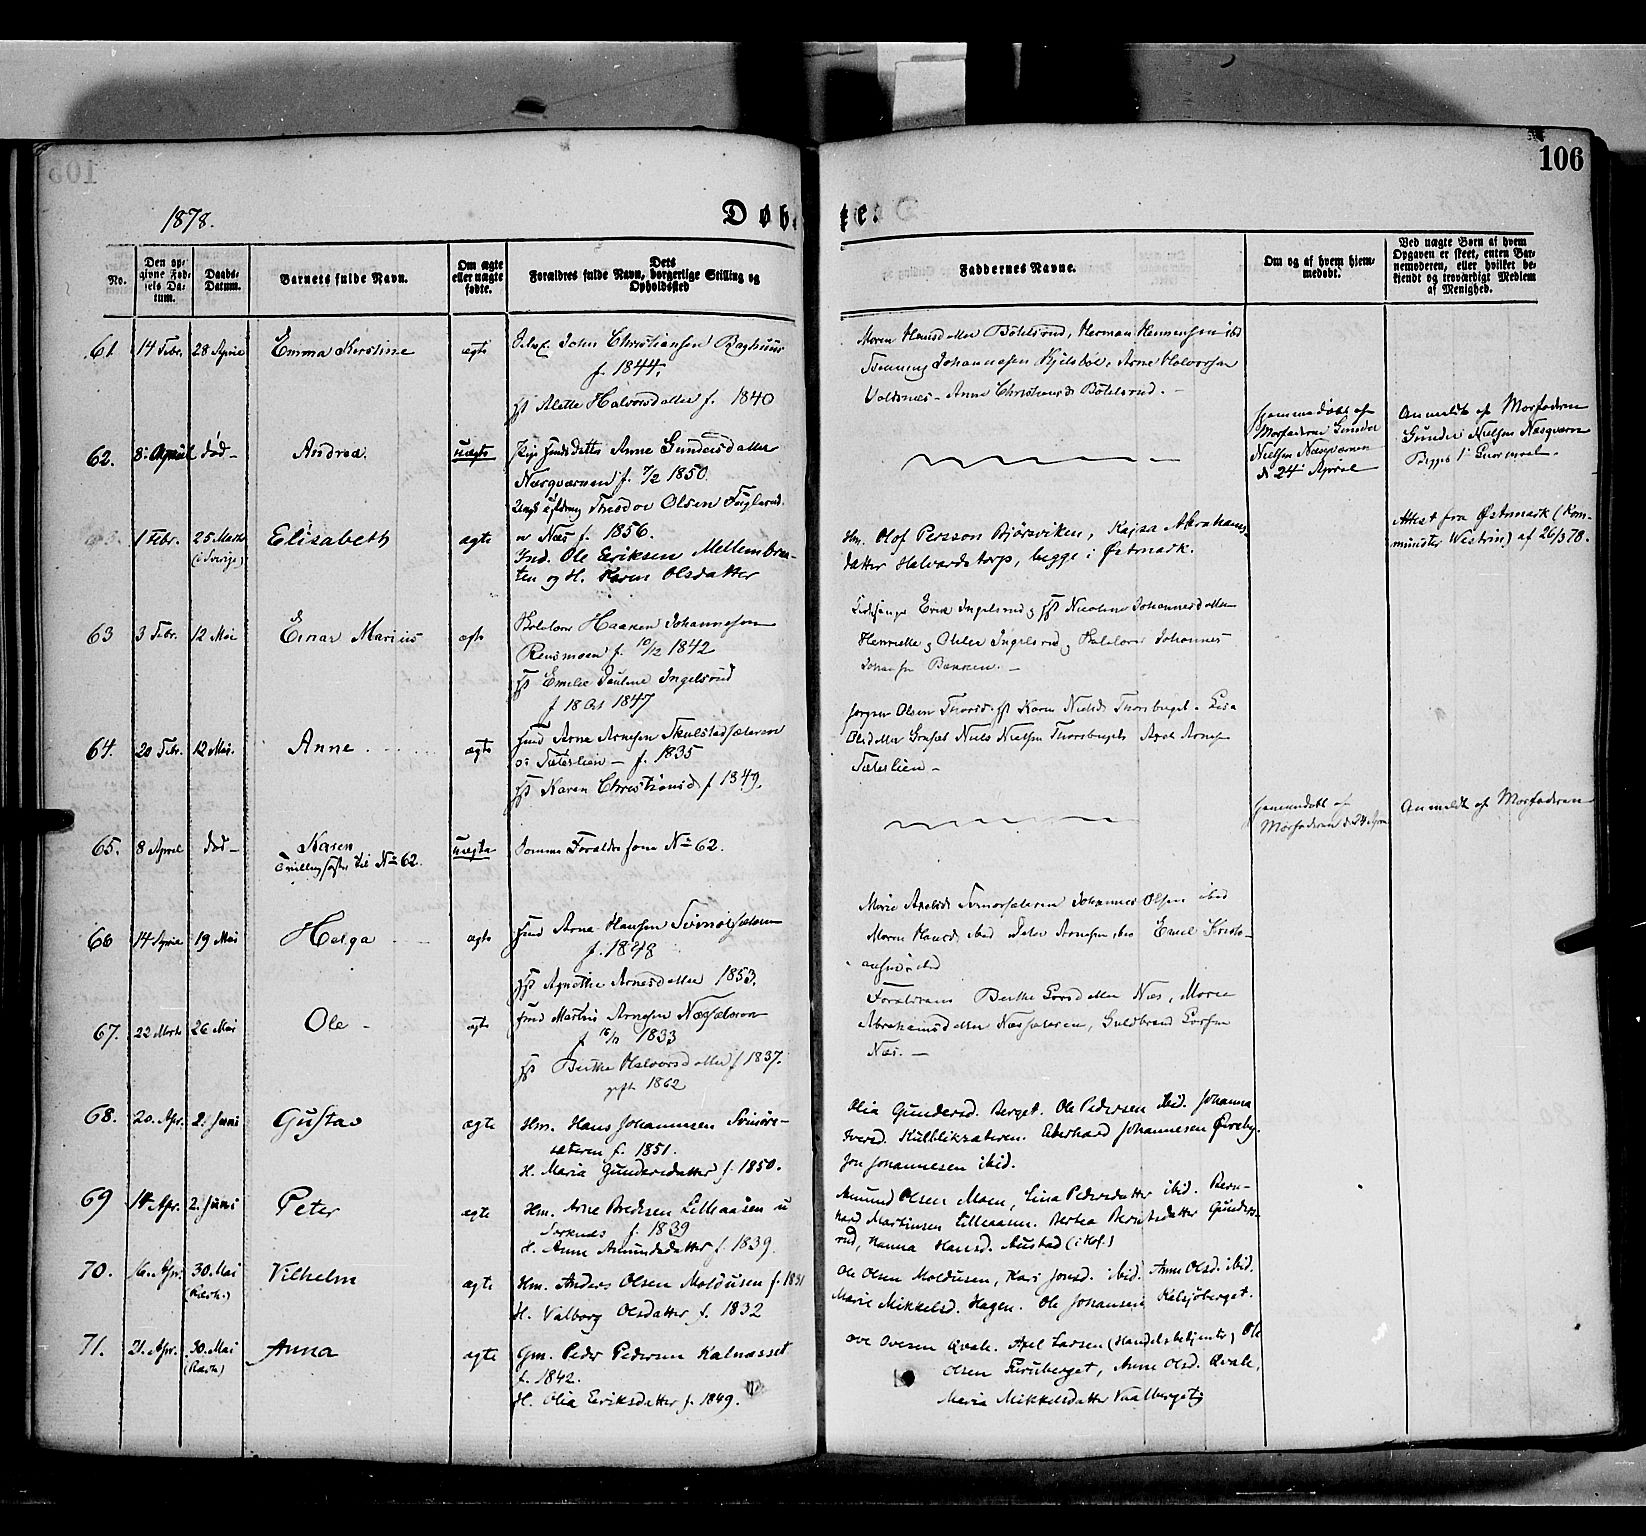 105
106
1878.
Døb-
te.
No.
Den op-
givne Fød-
sels Da-
tum.
Daabs-
Datum.
Barnets fulde Navn.
Om ægte
eller uægte
fødte.
Dets
Forældres fulde Navn, borgerlige Stilling og
Opholdssted
Faddernes Navne.
Om og af hvem hjem-
medøbt.
Ved uægte Børn af hvem
Opgaven er skeet, enten Bar-
nemoderen, eller hvilket be-
kjendt og troværdigt Medlem
af Menighed.
61 14 Febr. 28 April Emma Kerstine ægte John Christiansen Baghuus
f. 1844.
Alette Halvorsdatter f. 1840
Maren Hansdatter Bölelsrud, Herman Hennensen ibid
Johannesen Kjelsböl, Arne Halvorsen
Valdsnes - Anne Christiansd. Bölelsrud. -
62. 8: April død- Andrea. uægte Pige Anne Gundersdatter
Næsqvernen f. 7/2 1850.
Theodor Olsen Fuglerud
Næs f. 1856.
Hjemmedøbt af
Morfaderen Gunder
Nielsen Næsqvernen
d. 24 April
Anmeldt af Morfaderen
Gunder Nielsen Næsqvern
1 Febr. 25 Marts Elisabeth ægte
(i Sverige)
Ind. Ole Eriksen Mellembraa-
ten og H. Karen Olsdatter
Hm. Olof Persson Björaviken, Kajsa Abrahams-
datter Halvardstorp, begge i Östmark.
Attest fra Östmark (Kom-
minister Westrin) af 26/3 78.
63 3 Febr. 12 Mai Einar Marius ægte Haaken Johannesen
Rensmoen f. 10/12 1842
Emelie Pauline Ingelsrud
f 18 Oct 1847
Erik Ingelsrud, Nicoline Johannesdatter
Henriette, Ingelsrud, Johannes
Johansen Bakken. -
64. 20 Febr. 12 Mai. Anne ægte Arne Arnesen Skulstadsæteren
Sæterlien - f. 1835
Karen Christiansd. f 1849.
Jørgen Olsen Karen Nielsd. Thorsberget -
Niels Nielsen Thorsberget Axel Arnes
Sæterlien -
65. 8 April død- Karen uægte Samme Forældre som No 62.
Tvillingsøster til No 62.
Hjemmedøbt af
Morfaderen d. 24 April
Anmeldt af Morfaderen
66 14 April 19 Mai Helga ægte Arne Hansen
f. 1848
Agnethe Arnesdatter 1853.
Marie Axelsd. Johannes Olsen ibid
Maren Hansd. ibid Peter Arnesen ibid Emil Kristi-
ansen ibid
67. 22 Marts 26 Mai Ole - ægte Martin Arnesen Næssæteren
f 1833
Berthe Halvorsdatter f 1837.
gift 1862
Forældrene Berthe Larsdatter Næs, Maren
Abrahamsdatter Næssæteren, Guldbrand Larsen
Næs. -
68. 20. Apr. 2. Juni Gustav ægte Hm. Hans Johannesen Svinörs-
sæteren f. 1851.
H. Maria Gundersdatter f. 1850.
Olia Gundersd. Berget. Ole Pedersen ibid. Johanna
Iversd. Kulbliksæteren. Eberhard Johannesen Övreby.
Jon Johannesen ibid.
69 14 Apr. 2. Juni Peter ægte Hm. Arne Bredesen Lilleaasen u
Sorknæs f. 1839
H. Anne Amundsdatter f. 1839.
Amund Olsen Moen, Lina Pedersdatter ibid. Bern-
hard Martinsen Lilleaasen. Bertea Berntsdatter Gunders-
rud, Hanna Hansd. Austad (i Hof.)
70. 16. Apr. 30. Mai Vilhelm ægte Hm. Anders Olsen Moldusen f. 1831
H. Valborg Olsdatter f. 1832
Ole Olsen Moldusen, Kari Jonsd. ibid. Anne Olsd. ibid.
Marie Mikkelsd. Hagen. Ole Johansen Kalsjöberget.
71. 21. Apr. 30. Mai Anna ægte Gm. Peder Pedersen Kalnæsset
f. 1842.
H. Olia Eriksdatter f. 1849.
Ove Ovesen Qvale. Axel Larsen (Handelsbetjent), Ole
Olsen Furuberget, Anne Olsd. Qvale,
Maria Mikkelsdatter Vaalberget